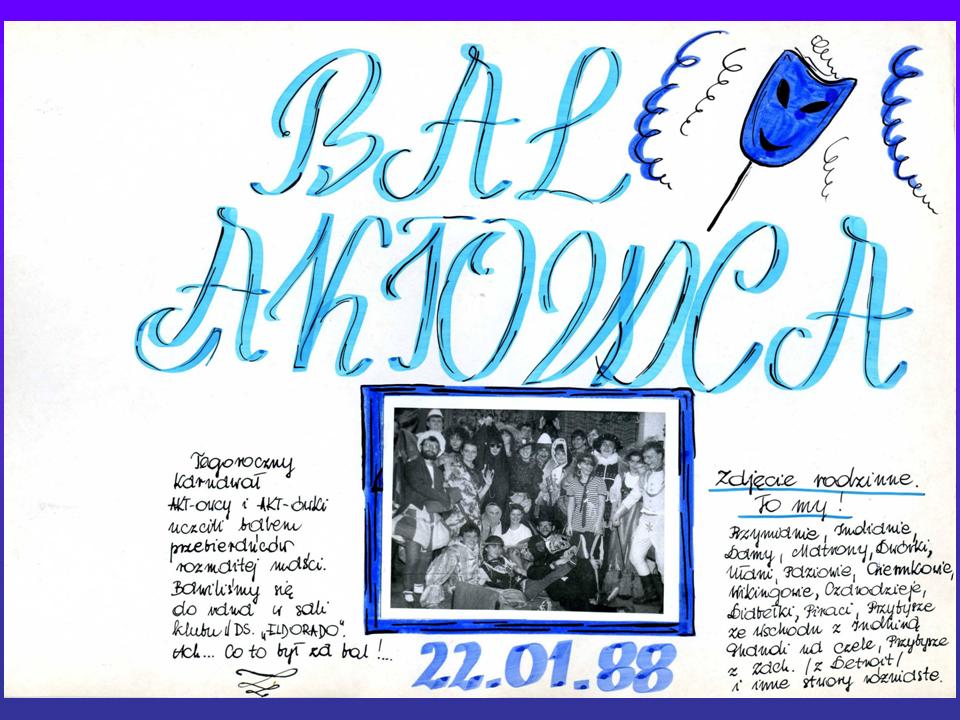 BAL
AKTOWCA
Tegoroczny
karnawał
AKT-owcy i AKT-ówki
uczcili balem
przebierańców
rozmaitej maści.
Bawiliśmy się
do rana w sali
klubu DS. „ELDORADO".
Ach... Co to był za bal!...
22.01.88
Zdjęcie rodzinne.
To my!
Rzymianie, Indianie,
Damy, Matrony, Dwórki,
Ułani, Paziowie,
Wikingowie, Czarodzieje,
Diabełki, Piraci, Przybysze
ze Wschodu z Indhirą
Ghandi na czele, Przybysze
z Zach. /z Detroit/
i inne stwory rozmaite.